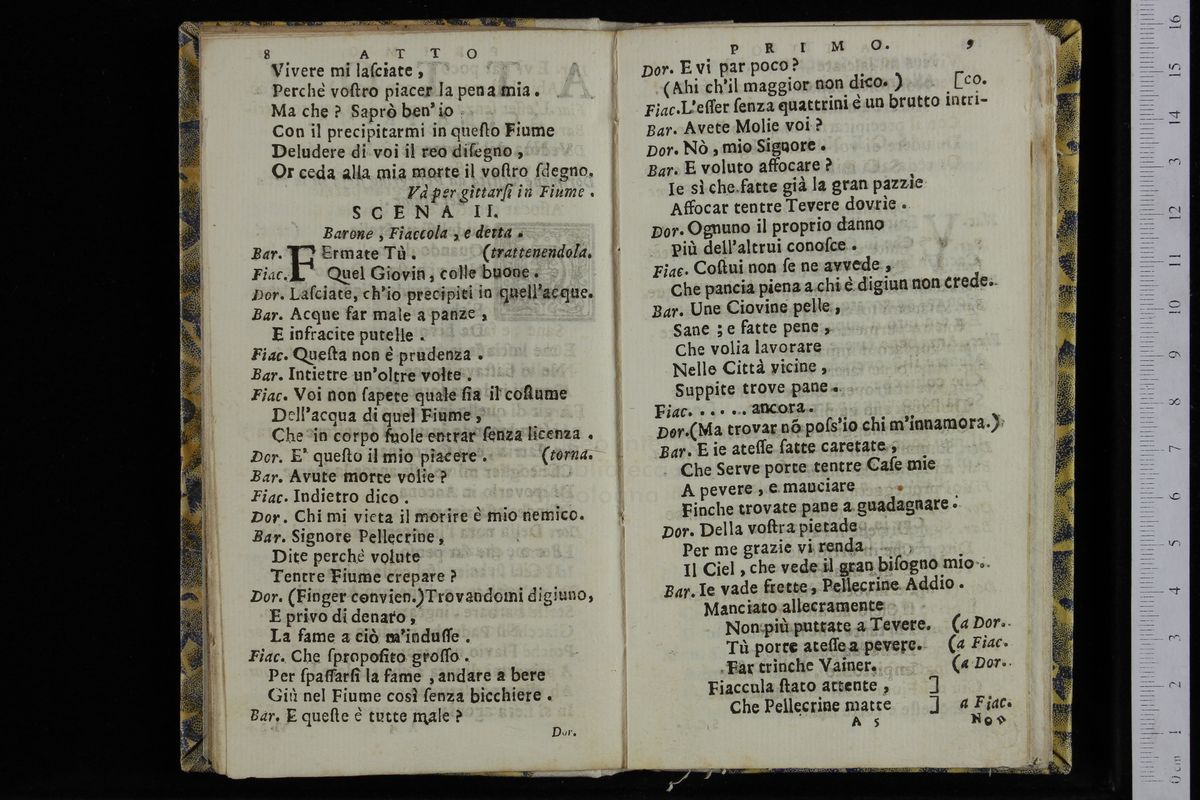 8 ATTO
Vivere mi laſciate,
Perchè voſtro piacer la pena mia.
Ma che? Saprò ben' io
Con il precipitarmi in queſto Fiume
Deludere di voi il reo diſegno,
Or ceda alla mia morte il voſtro ſdegno.
Và per gittarſi in Fiume.
SCENA II.
Barone, Fiaccola, e detta.
Bar. FErmate Tù. (trattenendola.
Fiac. Quel Giovin, colle buone.
Dor. Laſciate, ch'io precipiti in quell'acque.
Bar. Acque far male a panze,
E infracite putelle.
Fiac. Queſta non è prudenza.
Bar. Intietre un'oltre volte.
Fiac. Voi non ſapete quale ſia il coſtume
Dell'acqua di quel Fiume,
Che in corpo ſuole entrar ſenza licenza.
Dor. E' queſto il mio piacere. (torna.
Bar. Avute morte volie?
Fiac. Indietro dico.
Dor. Chi mi vieta il morire è mio nemico.
Bar. Signore Pellecrine,
Dite perchè volute
Tentre Fiume crepare?
Dor. (Finger convien.) Trovandomi digiuno,
E privo di denato,
La fame a ciò m'induſſe.
Fiac. Che ſpropoſito groſſo.
Per ſpaſſarſi la fame, andare a bere
Giù nel Fiume così ſenza bicchiere.
Bar. E queſte è tutte male?
Dor.
PRIMO. 9
Dor. E vi par poco?
(Ahi ch'il maggior non dico.) [co.
Fiac. L'eſſer ſenza quattrini è un brutto intri-
Bar. Avete Molie voi?
Dor. Nò, mio Signore.
Bar. E voluto affocare?
Ie sì che fatte già la gran pazzie
Affocar tentre Tevere dovrie.
Dor. Ognuno il proprio danno
Più dell'altrui conoſce.
Fiac. Coſtui non ſe ne avvede,
Che pancia piena a chi è digiun non crede.
Bar. Une Ciovine pelle,
Sane; e fatte pene,
Che volia lavorare
Nelle Città vicine,
Suppite trove pane.
Fiac. ...... ancora.
Dor. (Ma trovar nõ poſs'io chi m'innamora.)
Bar. E ie ateſſe fatte caretate,
Che Serve porte tentre Caſe mie
A pevere, e manciare
Finche trovate pane a guadagnare.
Dor. Della voſtra pietade
Per me grazie vi renda
Il Ciel, che vede il gran biſogno mio.
Bar. Ie vade frette, Pellecrine Addio.
Manciato allecramente
Non più puttate a Tevere. (a Dor.
Tù porte ateſſe a pevere. (a Fiac.
Far trinche Vainer. (a Dor.
Fiaccula ſtato attente, ]
Che Pellecrine matte ] a Fiac.
A 5 Non